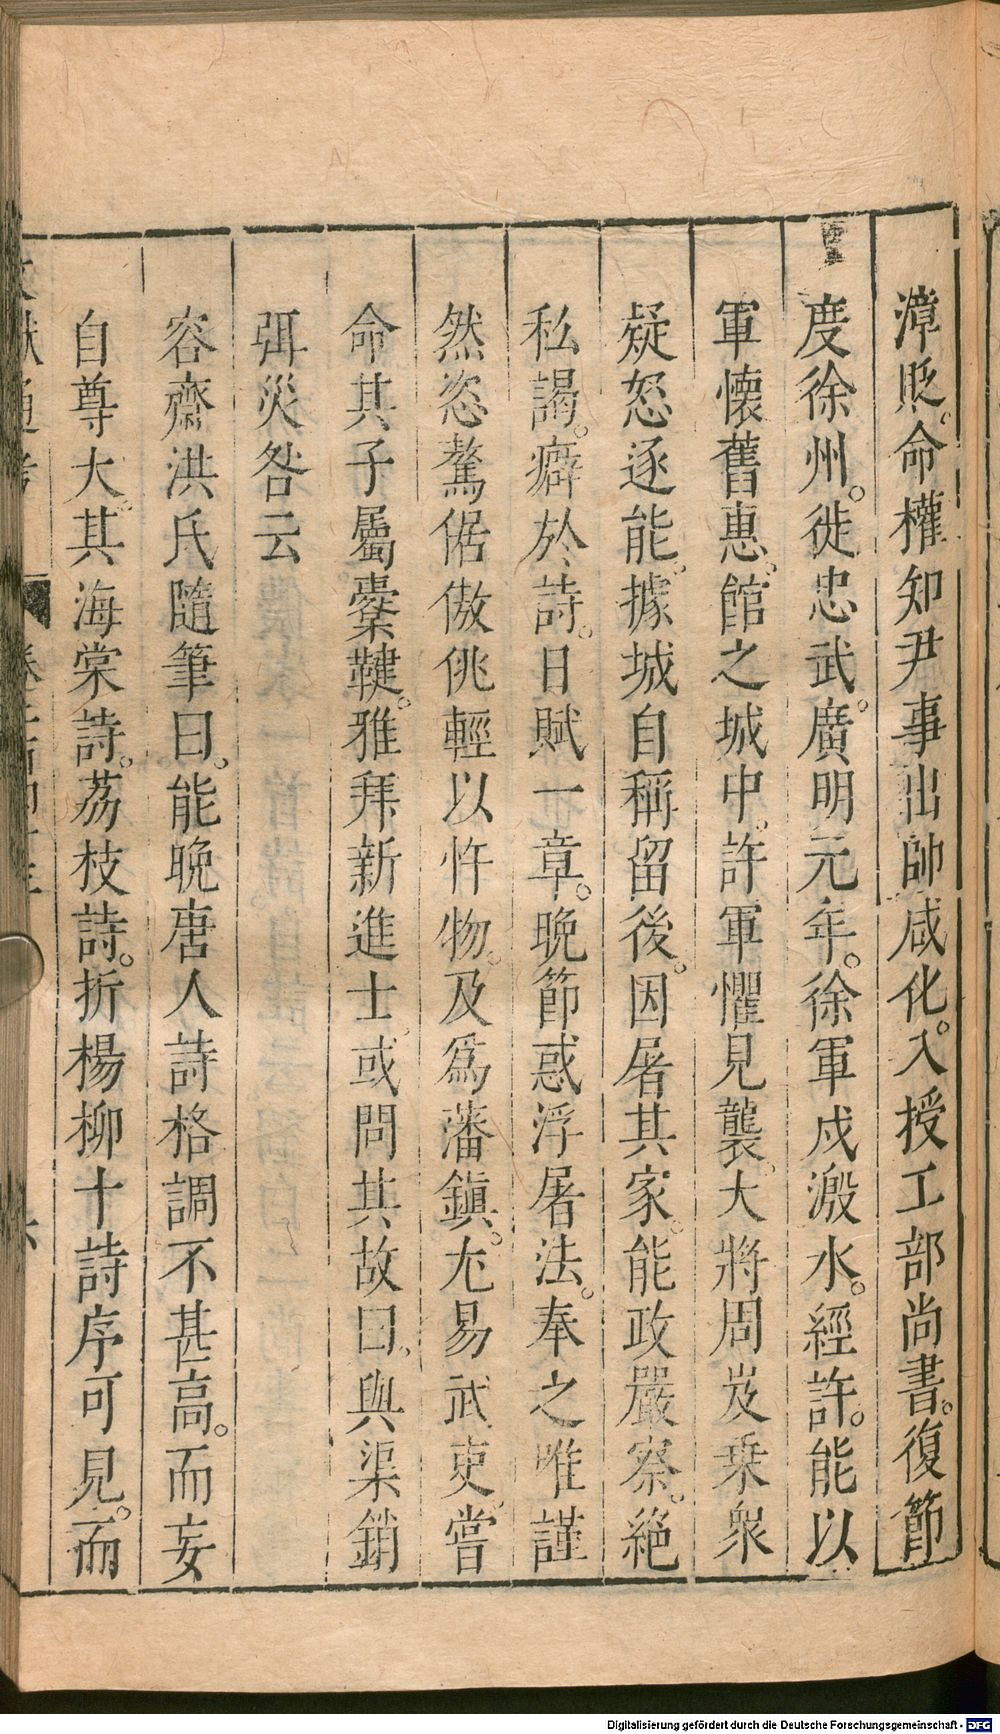 漳貶。命權知尹事出帥咸化。入授工部尚書。復節
度徐州。徙忠武。廣明元年。徐軍戍溵水。經許。能以
軍懷舊惠。館之城中。許軍懼見襲。大將周岌乗衆
疑怒逐能。據城自稱留後。因屠其家。能政嚴察。絕
私謁。癖於詩。日賦一章。晚節惑浮屠法。奉之唯謹
然恣驁倨傲佻輕以忤物。及爲藩鎮。尤易武吏。嘗
命其子屬櫜鞬。雅拜新進士。或問其故曰。與渠銷
弭災咎云
容齋洪氏隨筆曰。能晚唐人詩格調不甚高。而妄
自尊大。其海棠詩。荔枝詩。折楊柳十詩序可見。而
Digitalisierung gefördert durch die Deutsche Forschungsgemeinschaft - DFG